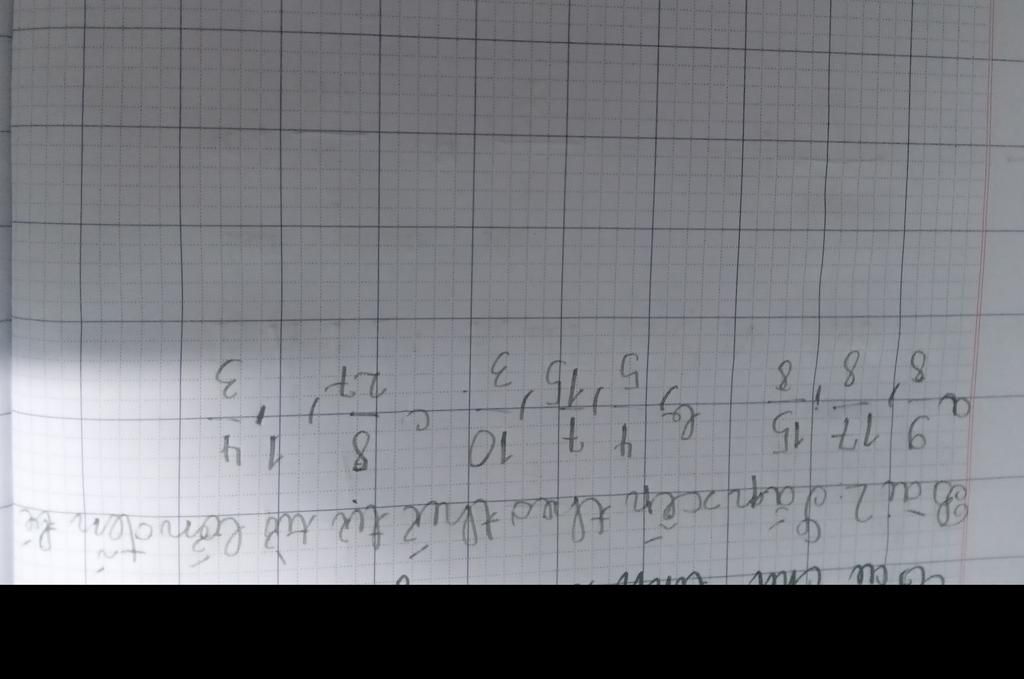 Bài 2 Sắp xếp theo thứ tự từ lớn đến bé
a 9/8, 17/8, 15/8 b, 4/5, 7/15, 10/3 c 8/27, 1, 4/3